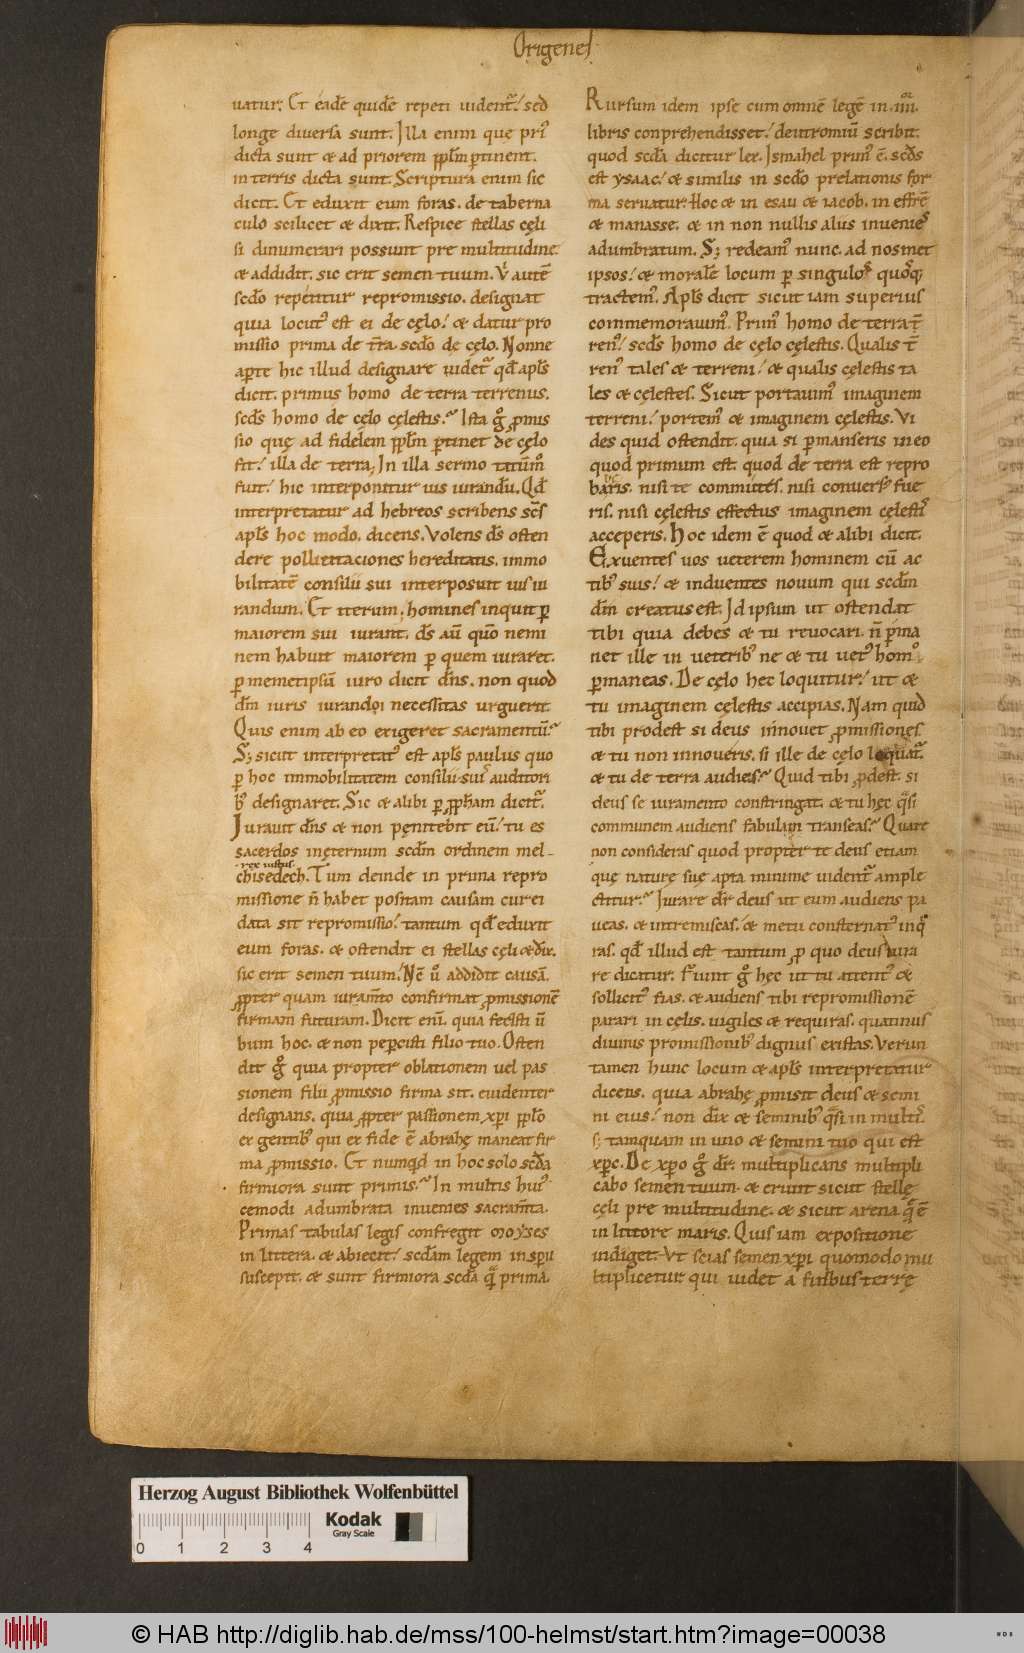 Origenes
uatur; Et eadē quidē repeti uident᷑/ sed
longe diuersa sunt. Illa enim quę pri᷒
dicta sunt & ad priorem pp̄lm ꝑtinent.
in terris dicta sunt. Scriptura enim sic
dicit. Et eduxit eum foras. de taberna
culo scilicet & dixit. Respice stellas cęli
si dinumerari possunt pre multitudine
& addidit. sic erit semen tuum. V̓ autē
scd̄o repetitur repromissio. designat
quia locut᷒ est ei de cęlo/ & datur pro
missio prima de tr̄ra. scd̄o de cęlo. Nonne
aꝑte hic illud designare uidet᷑ qd̄ apl̄s
dicit. primus homo de terra terrenus.
scd̄s homo de cęlo cęlestis.? Ista gͦ ꝓmis
sio quę ad fidelem pp̄lm ꝑtinet de cęlo
fit/ illa de terra; In illa sermo tantūm᷒
fuit/ hic interponitur ius iurand̄u. Qd̄
interpretatur ad hebreos scribens sc̄s
apl̄s hoc modo. dicens. Volens d̄s osten
dere pollicitaciones hereditatis. immo
bilitatē consilii sui interposuit ius iu
randum. Et iterum; homines inquit ꝑ
maiorem sui iurant. d̄s aū quō nemi
nem habuit maiorem ꝑ quem iuraret.
ꝑ memetipsū iuro dicit dn̄s. non quod
dm̄ iuris iurandi necessitas urguerit
Quis enim ab eo exigeret sacramentū?
S; sicut interpretat᷒ est apl̄s paulus quo
ꝑ hoc immobilitatem consilii sui auditori
b᷒ designaret. Sic & alibi ꝑ ꝓph̄am dicit᷑.
Iurauit dn̄s & non pęnitebit eū/ tu es
sacerdos inęternum scd̄m ordinem mel-
rex iustus
chisedech. Tum deinde in prima repro
missione n̄ habet positam causam cur ei
data sit repromissio/ tantum qd̄ eduxit
eum foras. & ostendit ei stellas cęli & dix̄.
sic erit semen tuum/ Nc̄ u᷒ addidit causā.
ꝓpter quam iuram̄to confirmat ꝓmissionē
firmam futuram. Dicit enī. quia fecisti ū
bum hoc. & non peꝑcisti filio tuo. Osten
dit gͦ quia propter oblationem uel pas
sionem filii ꝓmissio firma sit. euidenter
designans. quia ꝓpter passionem xp̄i pp̄lo
ex gentib᷒ qui ex fide ē abrahę maneat fir
ma ꝓmissio. Et numqd̄ in hoc solo scd̄a
firmiora sunt primis.? In multis hui᷒
cemodi adumbrata inuenies sacram̄ta.
Primas tabulas legis confregit moyses
in littera. & abiecit/ scd̄am legem in sp̄u
suscepit. & sunt firmiora scd̄a qͣ̄ prima.
Rursum idem ipse cum omnē legē in .iiiiᵒʳ.
libris conprehendisset/ deutromiū scribit.
quod scd̄a dicitur lex. Ismahel prim᷒ ē. scd̄s
est ysaac/ & similis in scd̄o prelationis for
ma seruatur. Hoc & in esau & iacob. in effrē
& manasse. & in non nullis aliis inuenies
adumbratum. S; redeam᷒ nunc. ad nosmet
ipsos/ & moralē locum ꝑ singulos quoq;
tractem᷒. Apl̄s dicit sicut iam superius
commemorauim᷒. Prim᷒ homo de terra t̄
ren᷒/ scd̄s homo de cęlo cęlestis. Qualis t̄
ren᷒ tales & terreni/ & qualis cęlestis ta
les & cęlestes. Sicut portauim᷒ imaginem
terreni/ portem᷒ & imaginem cęlestis. Vi
des quid ostendit. quia si ꝑmanseris in eo
quod primum est. quod de terra est repro
baris. nisi te committes. nisi conuersus fue
ris. nisi cęlestis effectus imaginem cęlestis
acceperis. Hoc idem ē quod & alibi dicit.
Exuentes uos ueterem hominem cū ac
tib᷒ suis/ & induentes nouum qui scd̄m
dm̄ creatus est. Id ipsum ut ostendat
tibi quia debes & tu reuocari. n̄ ꝑma
net ille in ueterib᷒ ne & tu uet᷒ homo
ꝑmaneas. De cęlo hec loquitur/ ut &
tu imaginem cęlestis accipias. Nam quid
tibi prodest si deus innouet ꝓmissiones
& tu non innoueris. si ille de cęlo loquat᷑
& tu de terra audieis? Quid tibi ꝓdest. si
deus se iuramento constringat. & tu hęc qͣsi
communem audiens fabulam transeas? Quare
non consideras quod propter te deus etiam
que naturę suę apta minime uident᷑ ample
ctitur? Iurare dr̄ deus ut eum audiens pa
ueas. & intremiscas/ & metu consternat᷒ inqͥ
ras. qd̄ illud est tantum ꝓ quo deus iura
re dicatur. Fiunt gͦ hęc ut tu attent᷒ &
sollicit᷒ fias. & audiens tibi repromissionē
parari in cęlis. uigiles & requiras. quatinus
diuinis promissionib᷒ dignus existas. Verum
tamen hunc locum & apl̄s interpretatur
dicens. quia abrahę ꝓmisit deus & semi
ni eius/ non dix̄ & seminib᷒ qͣsi in multis
s; tamquam in uno & semini tuo qui est
xp̄c. De xp̄o gͦ dr̄. multiplicans multipli
cabo semen tuum. & erunt sicut stellę
cęli pre multitudine. & sicut arena qͣ̄ ē
in littore maris. Quis iam expositione
indiget. Vt scias semen xp̄i quomodo mu
ltiplicetur qui uidet a finibus terrę
Herzog August Bibliothek Wolfenbüttel
Kodak
Gray Scale
0 1 2 3 4
© HAB http://diglib.hab.de/mss/100-helmst/start.htm?image=00038